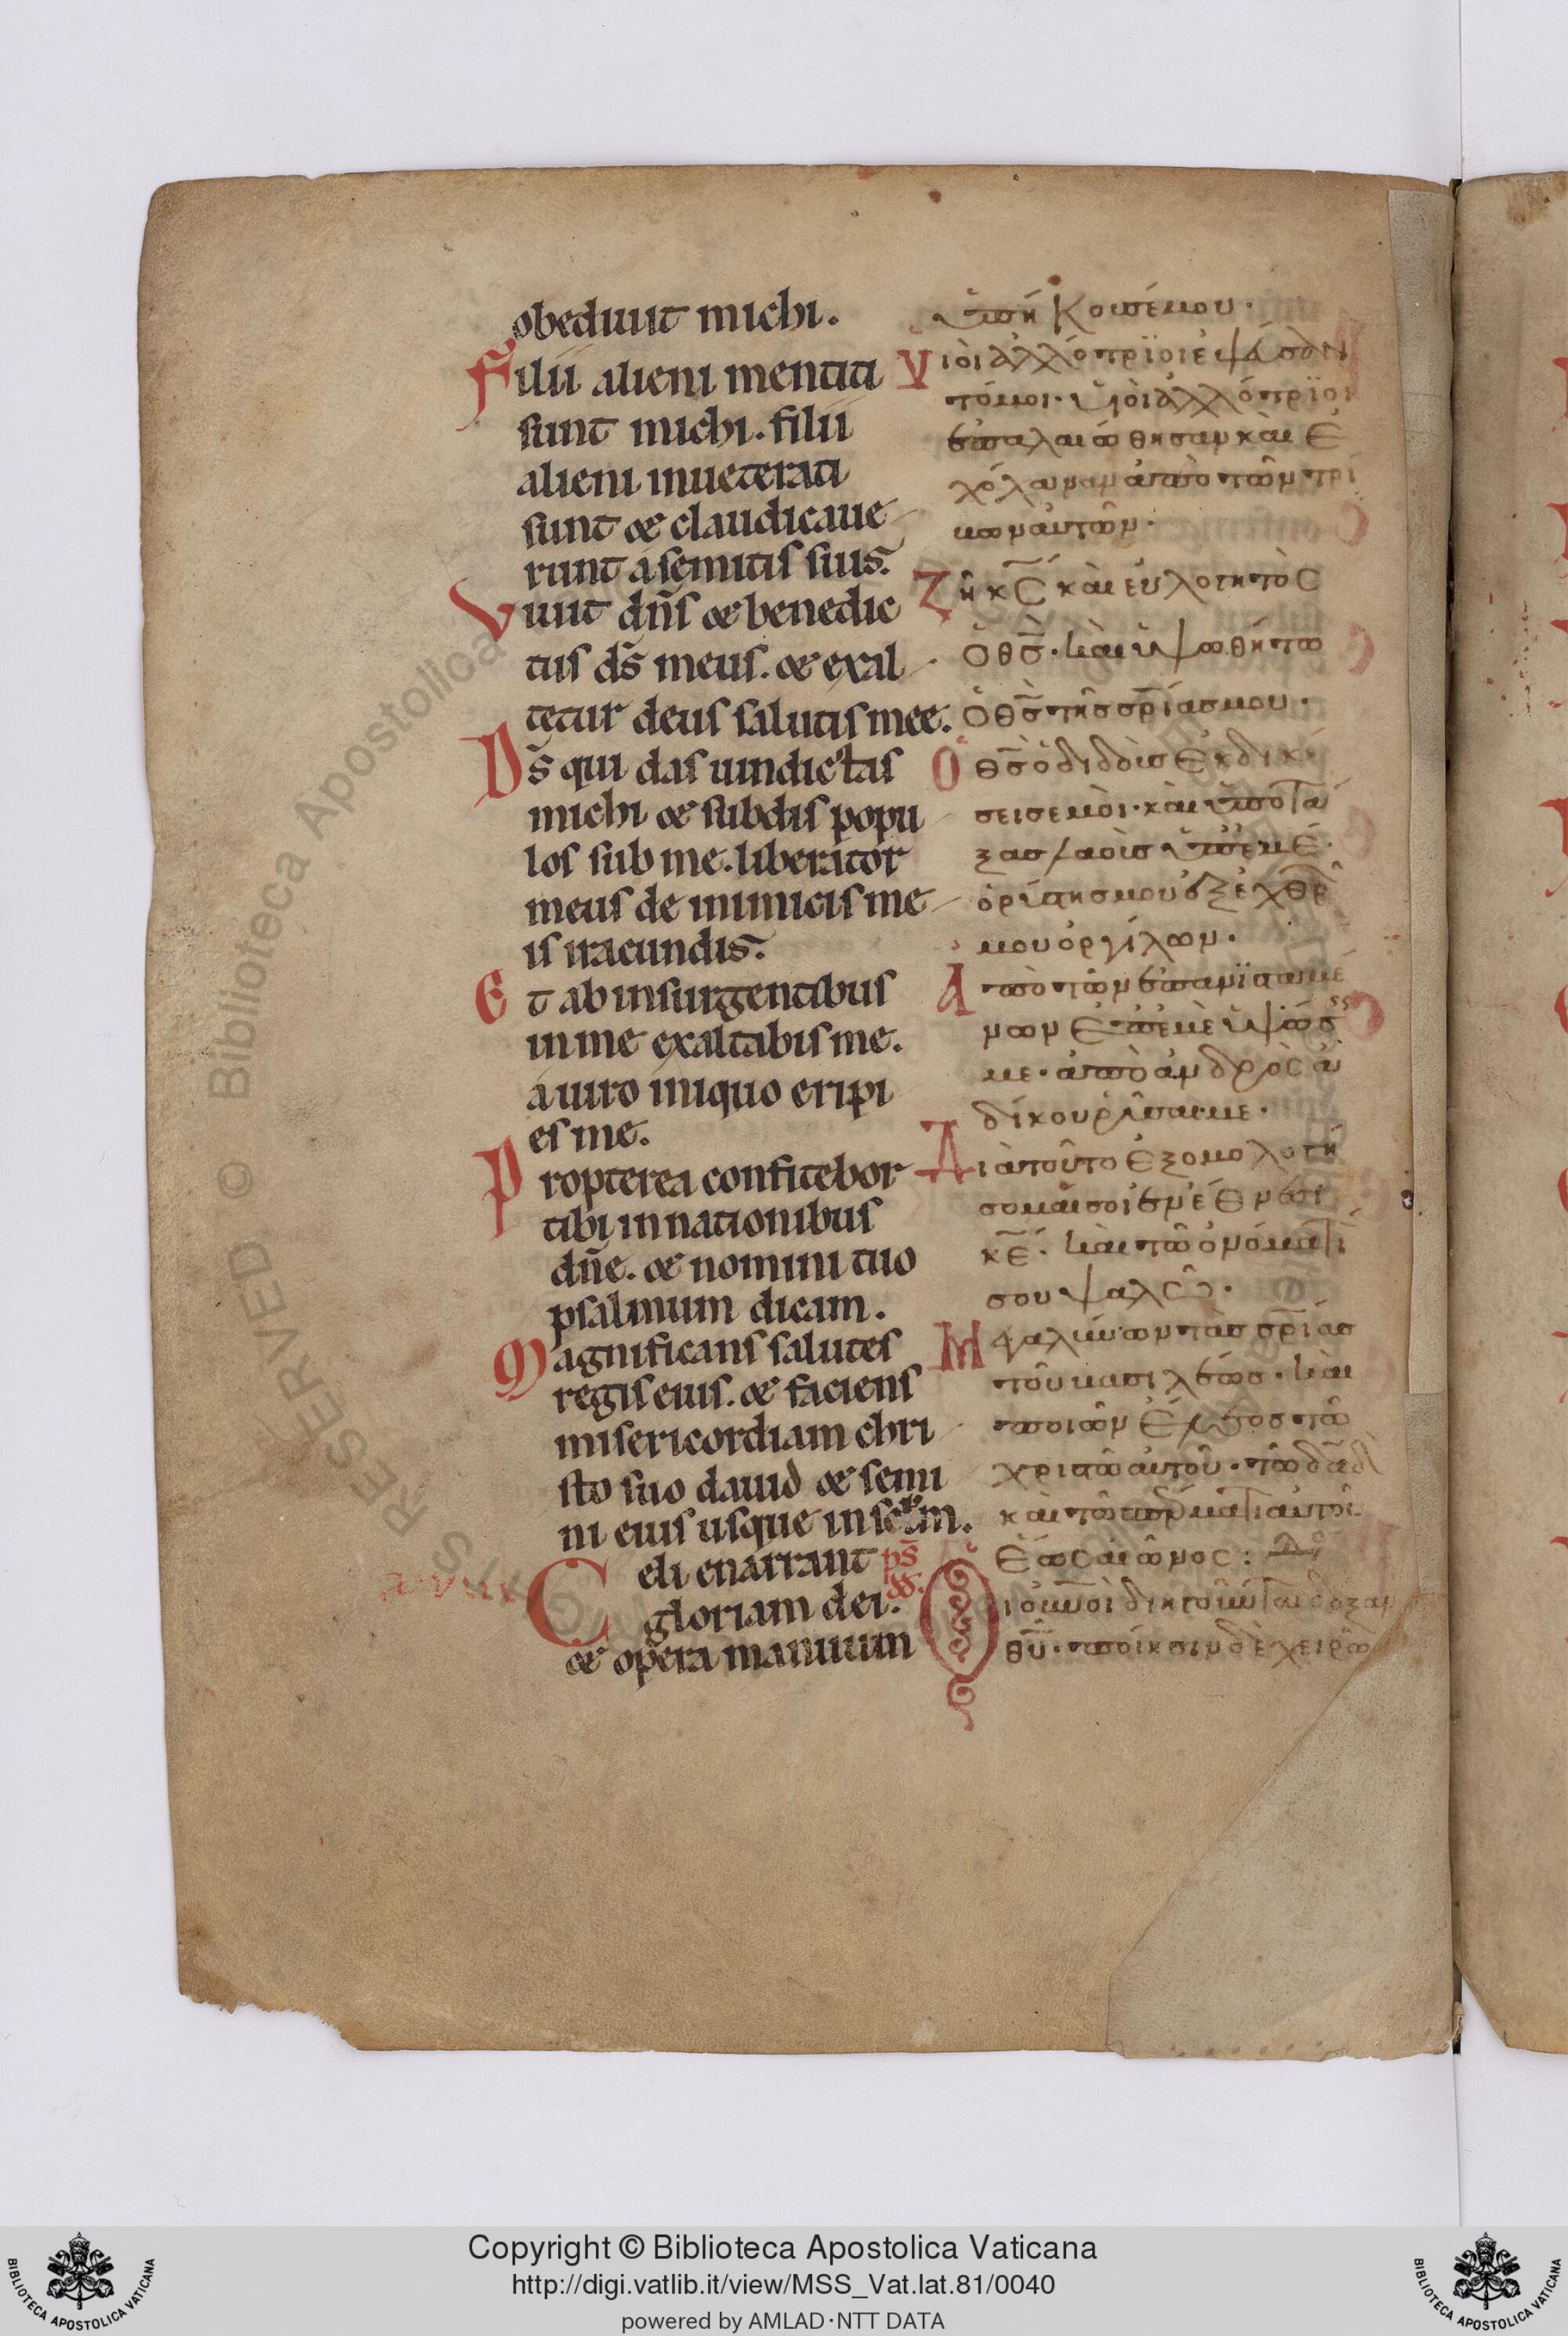 obediuit michi.
Filii alieni mentiti
sunt michi. filii
alieni inueterati
sunt & claudicaue
runt a semitis suis.
Viuit dn̄s & benedic
tus ds̄ meus. & exal
tetur deus salutis mee.
Ds̄ qui das uindictas
michi & subdis popu
los sub me. liberator
meus de inimicis me
is iracundis.
Et ab insurgentibus
in me exaltabis me.
a uiro iniquo eripi
es me.
Propterea confitebor
tibi in nationibus
dn̄e. & nomini tuo
psalmum dicam.
Magnificans salutes
regis eius. & faciens
misericordiam chri
sto suo dauid & semi
ni eius usque in sc̄lm.
Celi enarrant ps̄
gloriam dei.
& opera manuum
ὑπήκουσέ μου.
Υἱὸι ἀλλότριοι ἐψεύσαν
τό μοι. ὑιὸι ἀλλότριοι
ἐπαλαιώθησαν κὰι ἐ
χώλαναν ἀπὸ τῶν τρί
βων ἀυτῶν.
Ζῆ κ̄ς κὰι ἐυλογητὸς
ὁ θ̄ς. κὰι ὑψωθήτω
ὁ θ̄ς τῆς σρ̄ίας μου.
Ὁ θ̄ς ὁ διδὸυς ἐκδική
σεις ἐμὸι. κὰι ὑποτά
ξας λαὸυς ὑπ' ἐμέ.
ὁ ῥύστης μου ἐξ ἐχθρῶ
μου ὀργίλων.
Ἀπὸ τῶν ἐπανισταμέ
νων ἐπ' ἐμὲ ὑψώσεις
με. ἀπὸ ἀνδρὸς ἀ
δίκου ῥῦσαι με.
Διὰ τοῦτο ἐξομολογή
σομάι σοι ἐν ἔθνεσι
κ̄ε. κὰι τῶ ὀνόματί
σου ψαλῶ.
Μεγαλύνων τὰς σρ̄ίας
τοῦ βασιλέως. κὰι
ποιῶν ἔλεος τῶ
χριστῶ ἀυτοῦ. τῶ δᾱδ
κὰι τῶ σπέρματι ἀυτοῦ
ἕως ἀιῶνος:
Ὁι ὀυν̄οὶ διηγοῦνται δόξαν
θ̄υ. ποίησιν δὲ χειρῶν
Copyright © Biblioteca Apostolica Vaticana
http://digi.vatlib.it/view/MSS_Vat.lat.81/0040
powered by AMLAD·NTT DATA